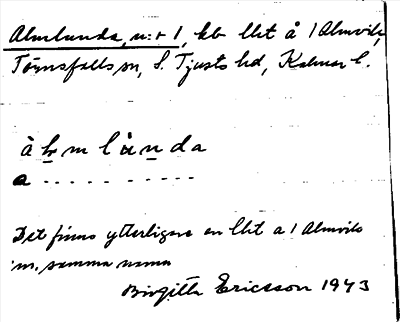 Almlunda, n:r 1, kb lht å 1 Almvik,
Törnsfalls sn, S. Tjusts hd, Kalmar l.
à l m l ù n d a
a . . . . . . . . . .
Det finns ytterligare en lht a 1 Almvik
m. samma namn
Birgitta Ericsson 1943